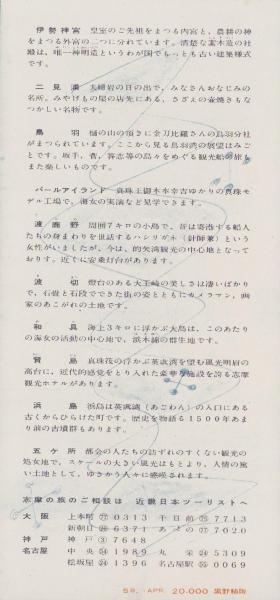 伊勢神宮　皇室のご先祖をまつる内宮と、農耕の神
をまつる外宮の二つに分れています。清楚な素木造の社
殿は、唯一神明造というわが国でもっとも古い建築様式
です。
二見浦　夫婦岩の日の出で、みなさんおなじみの
名所。みやげもの屋の店先にある、さざえの壷焼きもな
つかしい名物です
鳥羽　樋の山の頂きに金刀比羅さんの鳥羽分社
がまつられています。ここから見る鳥羽湾の展望はみご
とです。坂手、菅、答志等の島々をめぐる観光船の旅も
また楽しいものです。
パールアイランド　真珠王御木本幸吉ゆかりの真珠モ
デル工場で、海女の実演など見学できます。
渡鹿野　周囲7キロの小島で、昔は寄港する船人
たちの身まわりを世話するハシリガネ（針師兼）という
女性がいましたが、今は、的矢湾観光の中心地となって
おります。近くに安乗灯台があります。
波切　燈台のある大王崎の美しさは凄いばかり
で、石畳と石段でできた街の姿とともにカメラマン、画
家のあこがれの土地です。
和具　海上3キロに浮かぶ大島は、このあたり
の海女の活動の中心地で、浜木綿の群生地です。
賢島　真珠筏の浮かぶ英虞湾を望む風光明眉の
高台に、近代的感覚をとり入れた豪華な施設を誇る志摩
観光ホテルがあります。
浜島　浜島は英虞湾（あごわん）の入口にある
古くからひらけた町です。歴史を物語る1500年あま
り前の古墳群もあります。
五ケ所　都会の人たちの訪ずれのすくない観光の
処女地で、スケールの大きい風光はもとより、人情の篤
い土地として、ゆきかう人々に感嘆されます。
志摩の旅のご相談は　近畿日本ツーリストへ
大阪　上本町 0313　千日前 7713
新朝日 6371　あべの 7020
神戸　神戸③7648
名古屋　中央 1989　丸栄 5309
松坂屋 1396　名古屋駅 0069
58. APR. 20.000